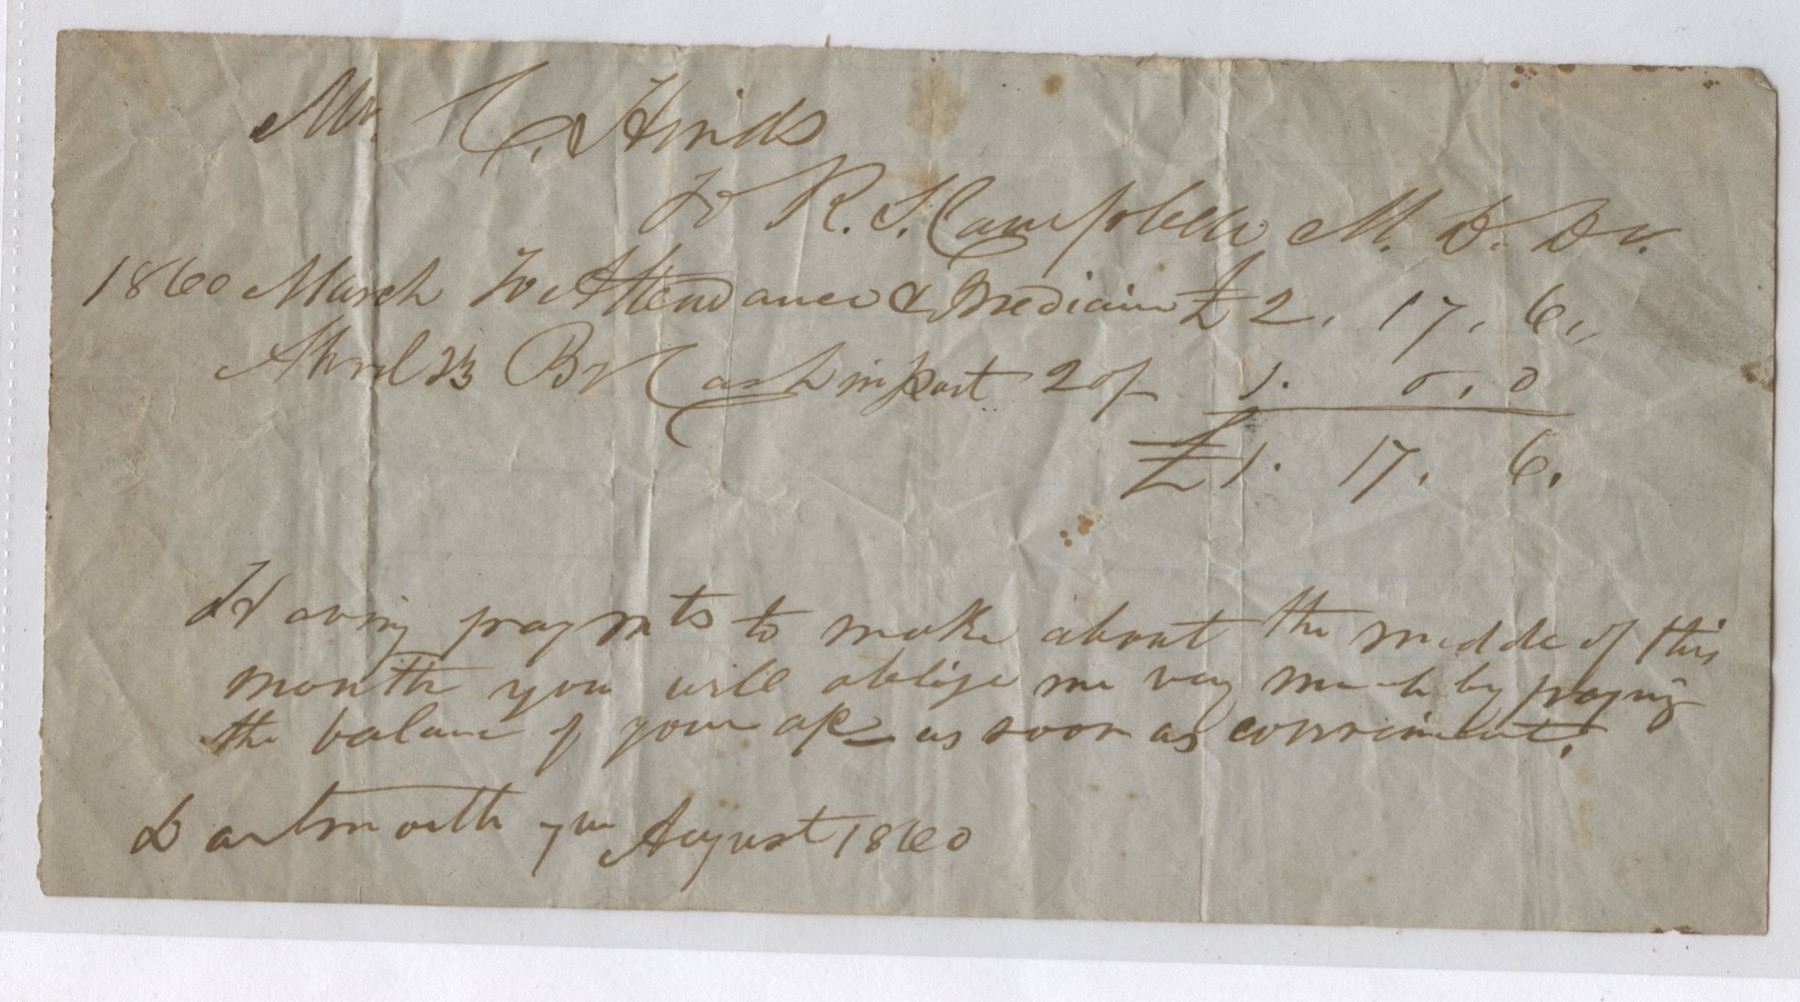 Mr. C. Hinds
To R. S. Campbell M. D. Dr.
1860 March To Attendance & Medicine £2. 17. 6.
April 23 By Cash in part 20/ 1. 0. 0
£1. 17. 6.
Having paymts to make about the middle of this
month you will oblige me very much by paying
the balance of your a/c as soon as convenient.
Dartmouth 7th August 1860